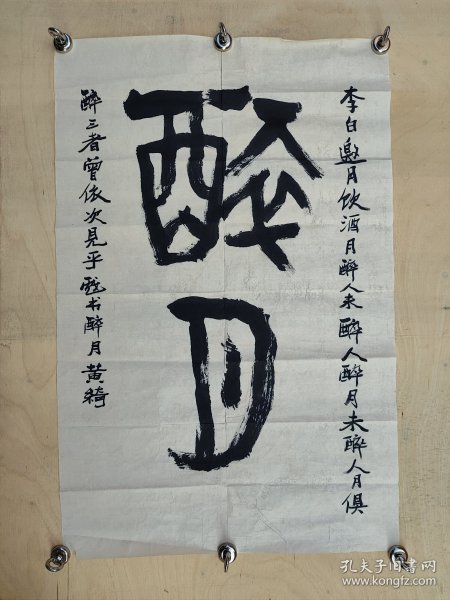 李白邀月饮酒月醉人未醉人醉月未醉人月俱
醉月
醉三者曾依次見乎戏书醉月黄绮
孔夫子旧书网
www.kongfz.com